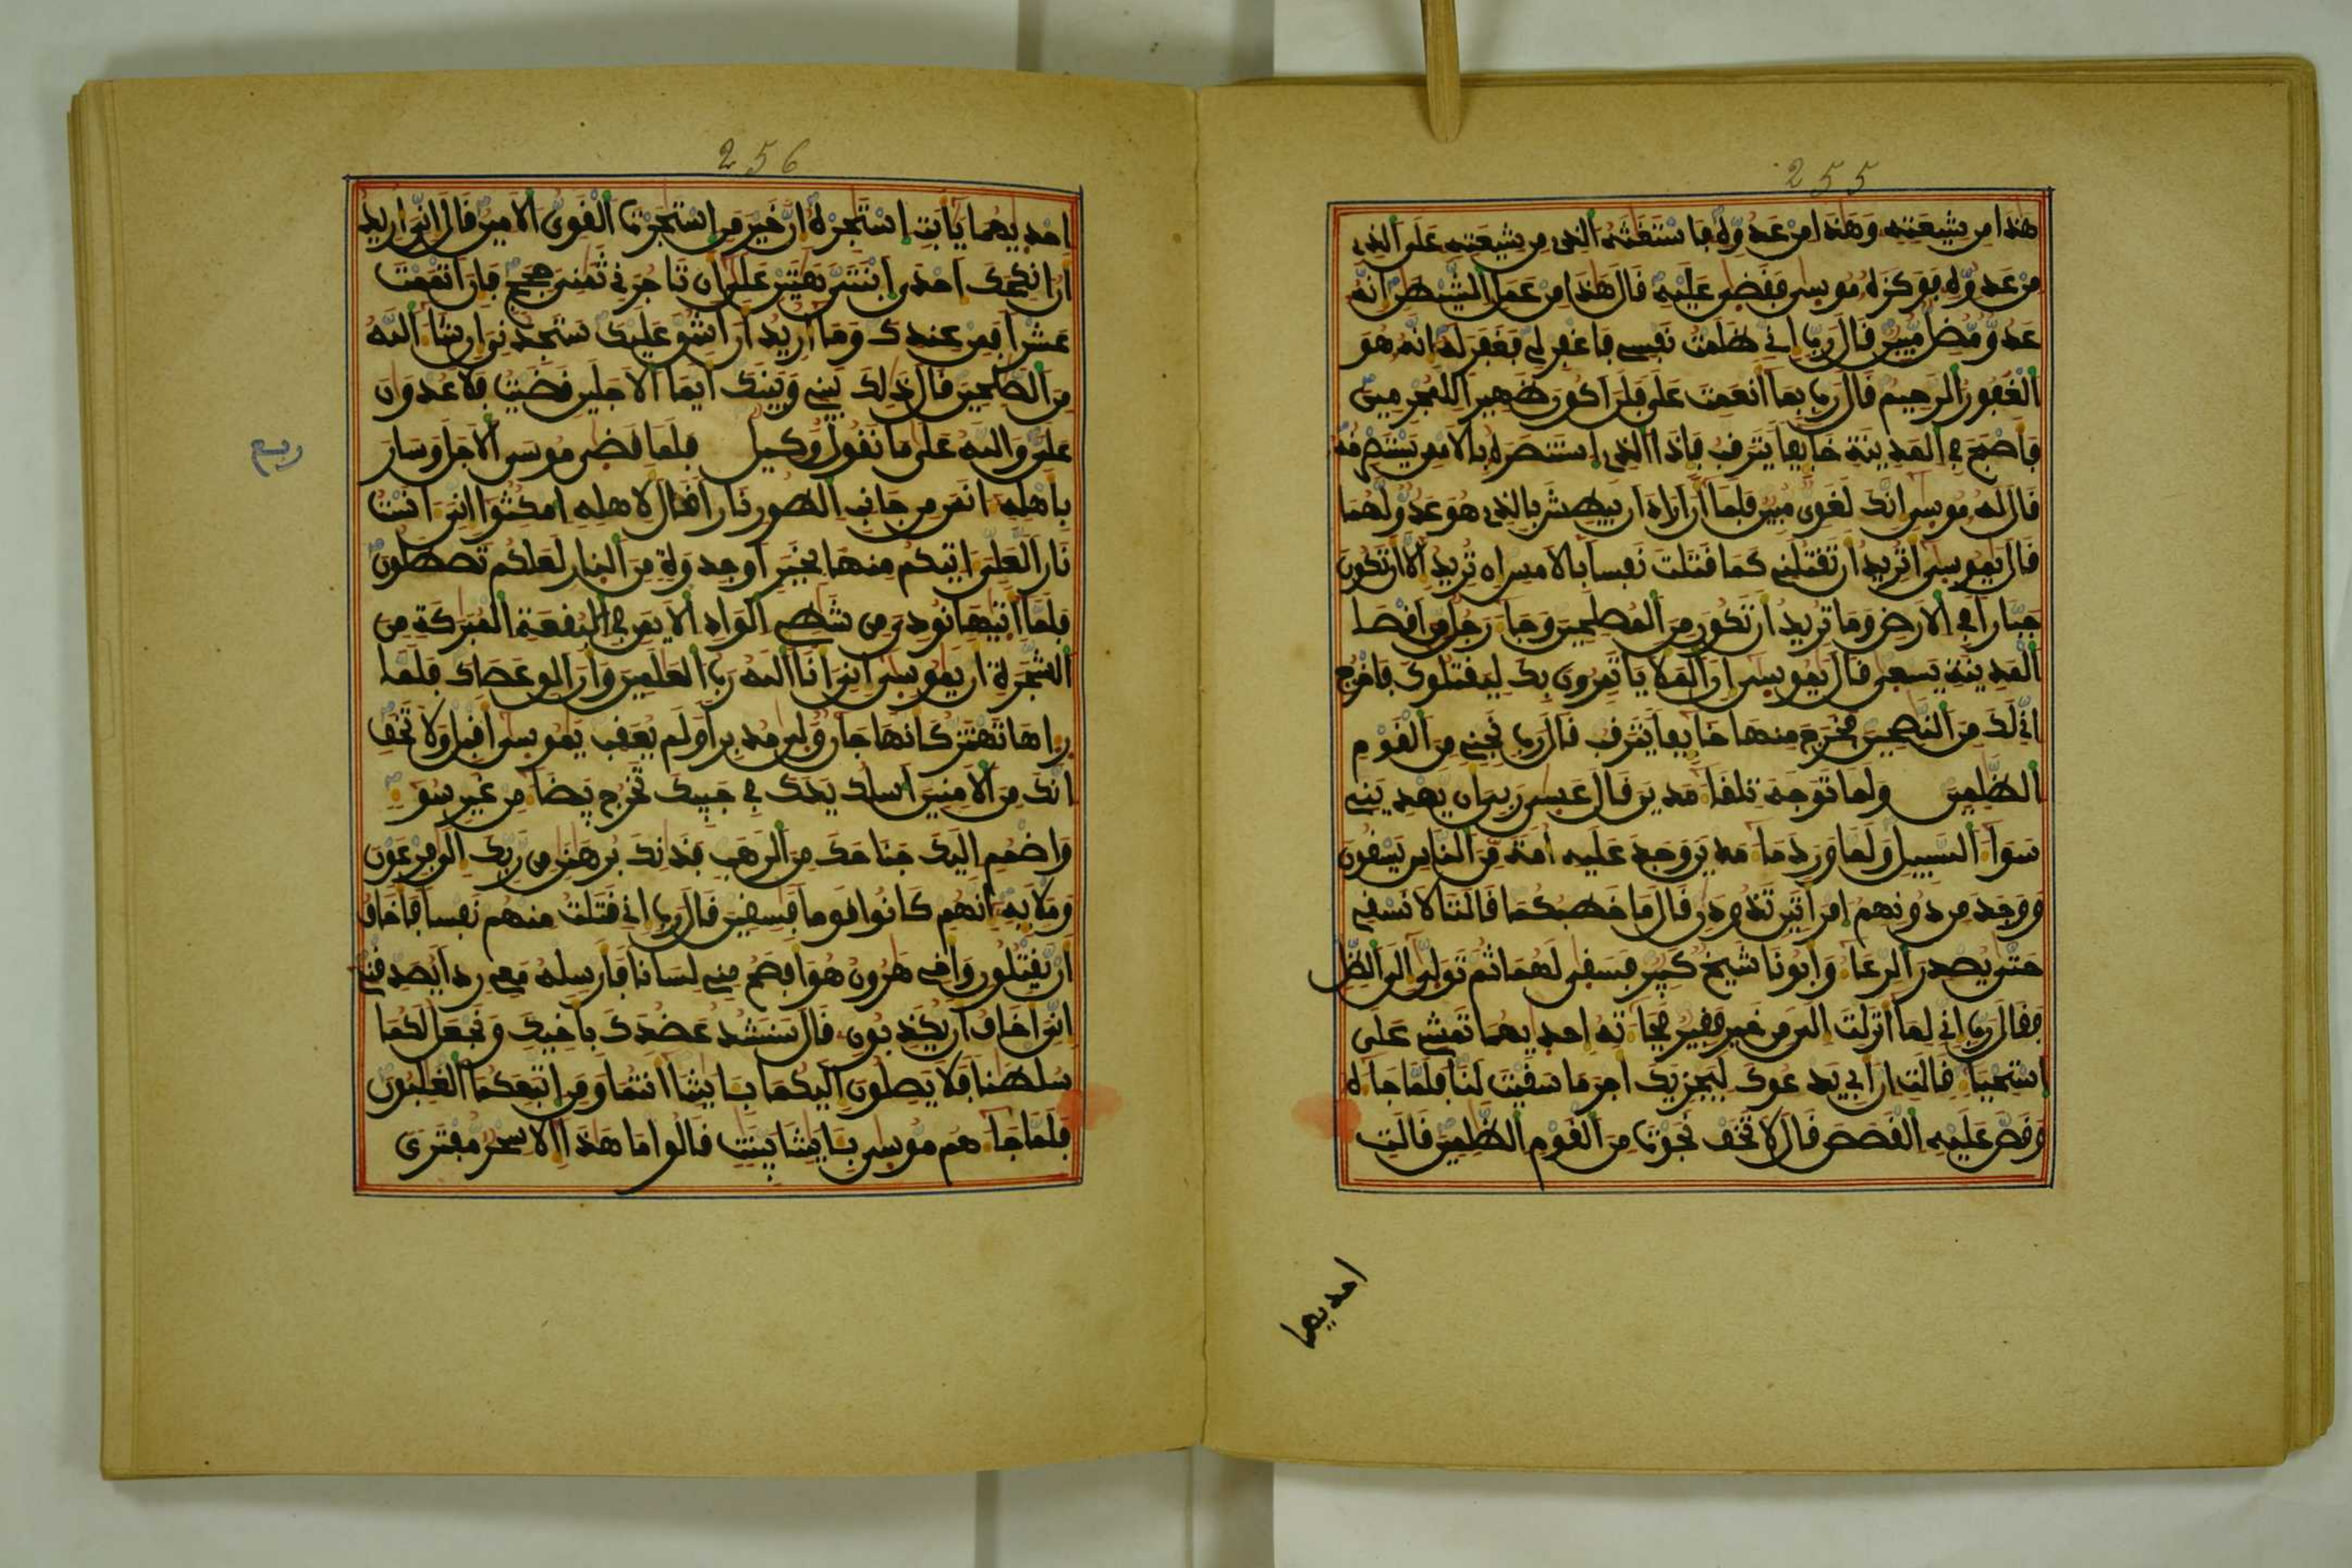 255
هذا من شيعته وهذا من عدوه فاستغثه الذى من شيعته على الذى
من عدوه فوكزه موسى فقضى عليه قال هذا من عمل الشيطن انه
عدو مضل مبين قال رب انى ظلمت نفسى فاغفر لى فغفر له انه هو
الغفور الرحيم قال رب بما انعمت على فلن اكون ظهيرا للمجرمين
فاصبح فى المدينة خايفا يترقب فاذا الذى استنصره بالامس يستصرخه
قال له موسى انك لغوى مبين فلما ان اراد ان يبطش بالذى هو عدو لهما
قال يموسى اتريد ان تقتلنى كما قتلت نفسا بالامس ان تريد الا ان تكون
جبارا فى الارض وما تريد ان تكون من المصلحين وجا رجل من اقصا
المدينة يسعى قال يموسى ان الملا ياتمرون بك ليقتلوك فاخرج
انى لك من النصحين فخرج منها خايفا يترقب قال رب نجنى من القوم
الظلمين ولما توجه تلقا مدين قال عسى ربى ان يهدينى
سوا السبيل ولما ورد ما مدين وجد عليه امة من الناس يسقون
ووجد من دونهم امراتين تذودن قال ما خطبكما قالتا لا نسقى
حتى يصدر الرعا وابونا شيخ كبير فسقى لهما ثم تولى الى الظل
فقال رب انى لما انزلت الى من خير فقير فجاته احديهما تمشى على
استحيا قالت ان ابى يدعوك ليجزيك اجر ما سقيت لنا فلما جاه
وقص عليه القصص قال لا تخف نجوت من القوم الظلمين قالت
احديهما
256
احديهما يابت استجره ان خير من استجرت القوى الامين قال انى اريد
ان انكحك احدى ابنتى هتين على ان تاجرنى ثمنى حجج فان اتممت
عشرا فمن عندك وما اريد ان اشق عليك ستجدنى ان شا الله
من الصلحين قال ذلك بينى وبينك ايما الاجلين قضيت فلا عدوان
على والله على ما نقول وكيل فلما قضى موسى الاجل وسار
ربع
باهله انس من جانب الطور نارا قال لاهله امكثوا انى انست
نارا لعلى اتيكم منها بخبر او جذوة من النار لعلكم تصطلون
فلما اتيها نودى من شطى الواد الايمن فى البقعة المبركة من
الشجرة ان يموسى انى انا الله رب العلمين وان الق عصاك فلما
راها تهتز كانها جان ولى مدبرا ولم يعقب يموسى اقبل ولا تخف
انك من الامنين اسلك يدك فى جيبك تخرج بيضا من غير سو
واضمم اليك جناحك من الرهب فذنك برهنن من ربك الى فرعون
وملايه انهم كانوا قوما فسقين قال رب انى قتلت منهم نفسا فاخاف
ان يقتلون واخى هرون هو افصح منى لسانا فارسله معى ردا يصدقنى
انى اخاف ان يكذبون قال سنشد عضدك باخيك ونجعل لكما
سلطنا فلا يصلون اليكما بايتنا انتما ومن اتبعكما الغلبون
فلما جاهم موسى بايتنا بينت قالوا ما هذا الا سحر مفترى